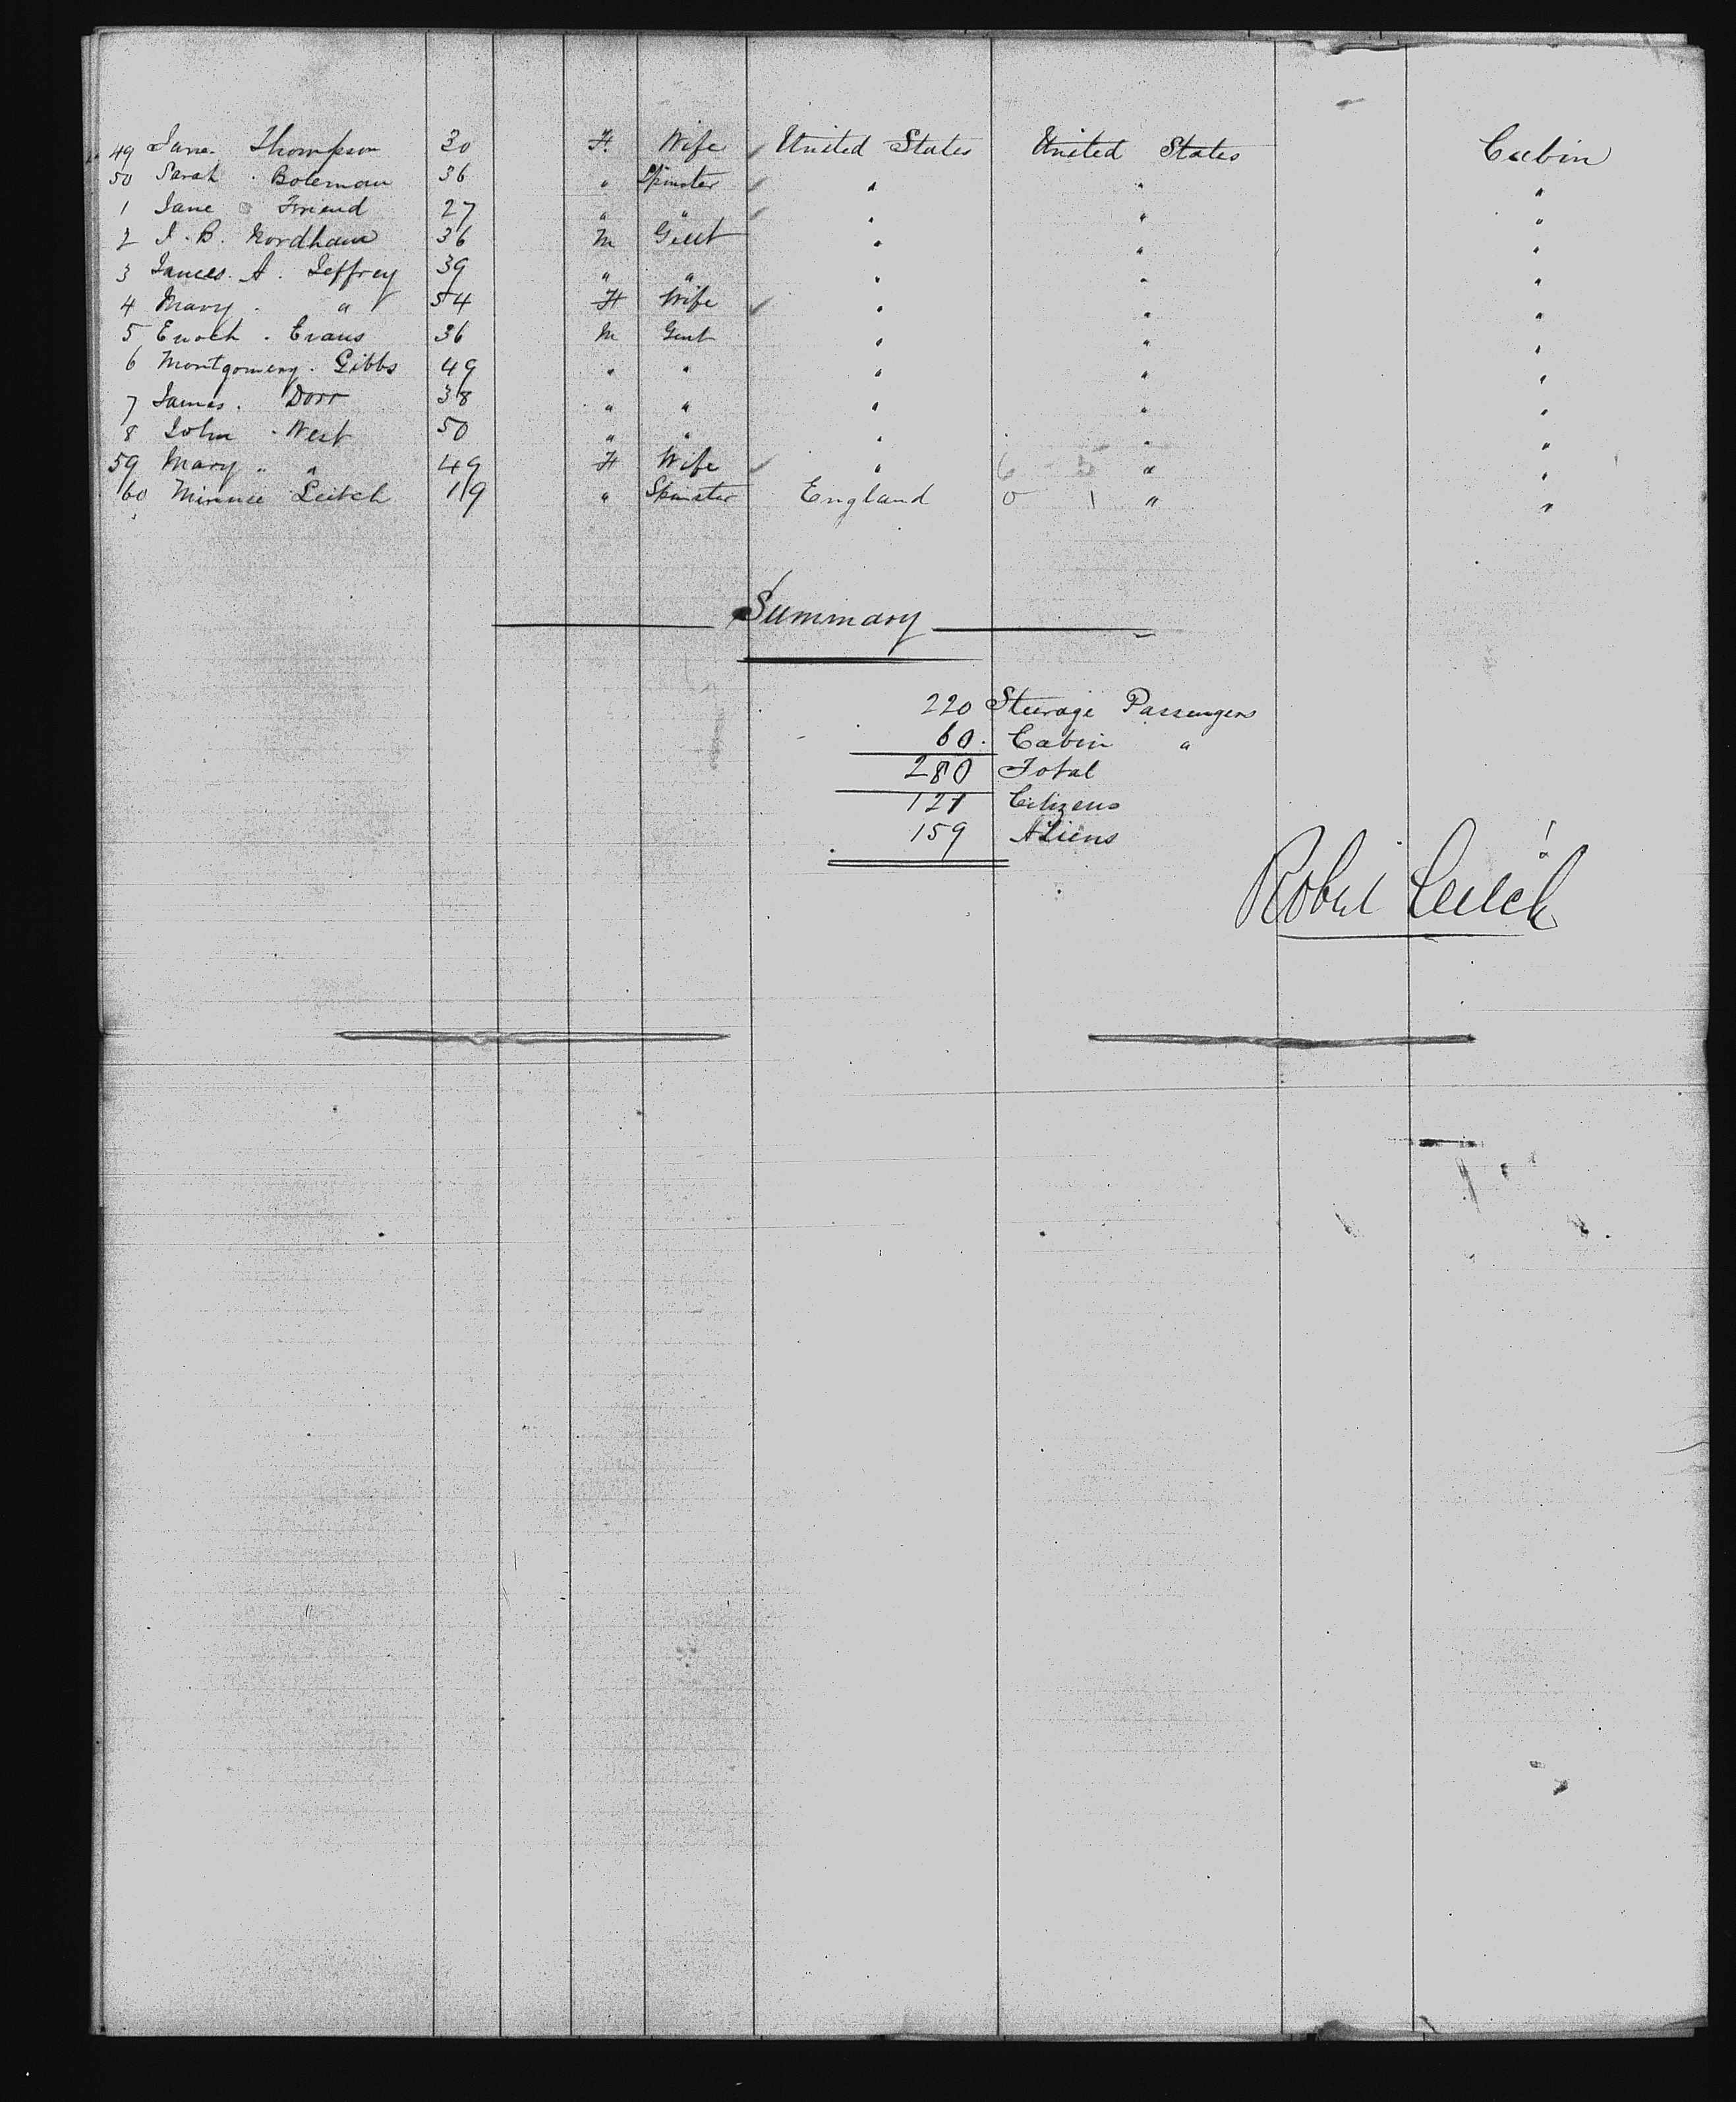 49 Jane. Thompson 30 F. Wife United States United States Cabin
50 Sarah . Boleman 36 " Spinster " " "
1 Jane Friend 27 " " " " "
2 J. B. Fordham 36 M Gent " " "
3 James. A. Jeffrey 39 " " " " "
4 Mary . " 54 F Wife " " "
5 Enoch . Evans 36 M Gent " " "
6 Montgomery . Gibbs 49 " " " " "
7 James . Dorr 38 " " " " "
8 John . West 50 " " " " "
59 Mary " " 49 F Wife " 6 5 " "
60 Minnie Leitch 19 " Spinster England 0 1 " "
Summary
220 Steerage Passengers
60. Cabin "
280 Total
121 Citizens
159 Aliens
Robert Leitch